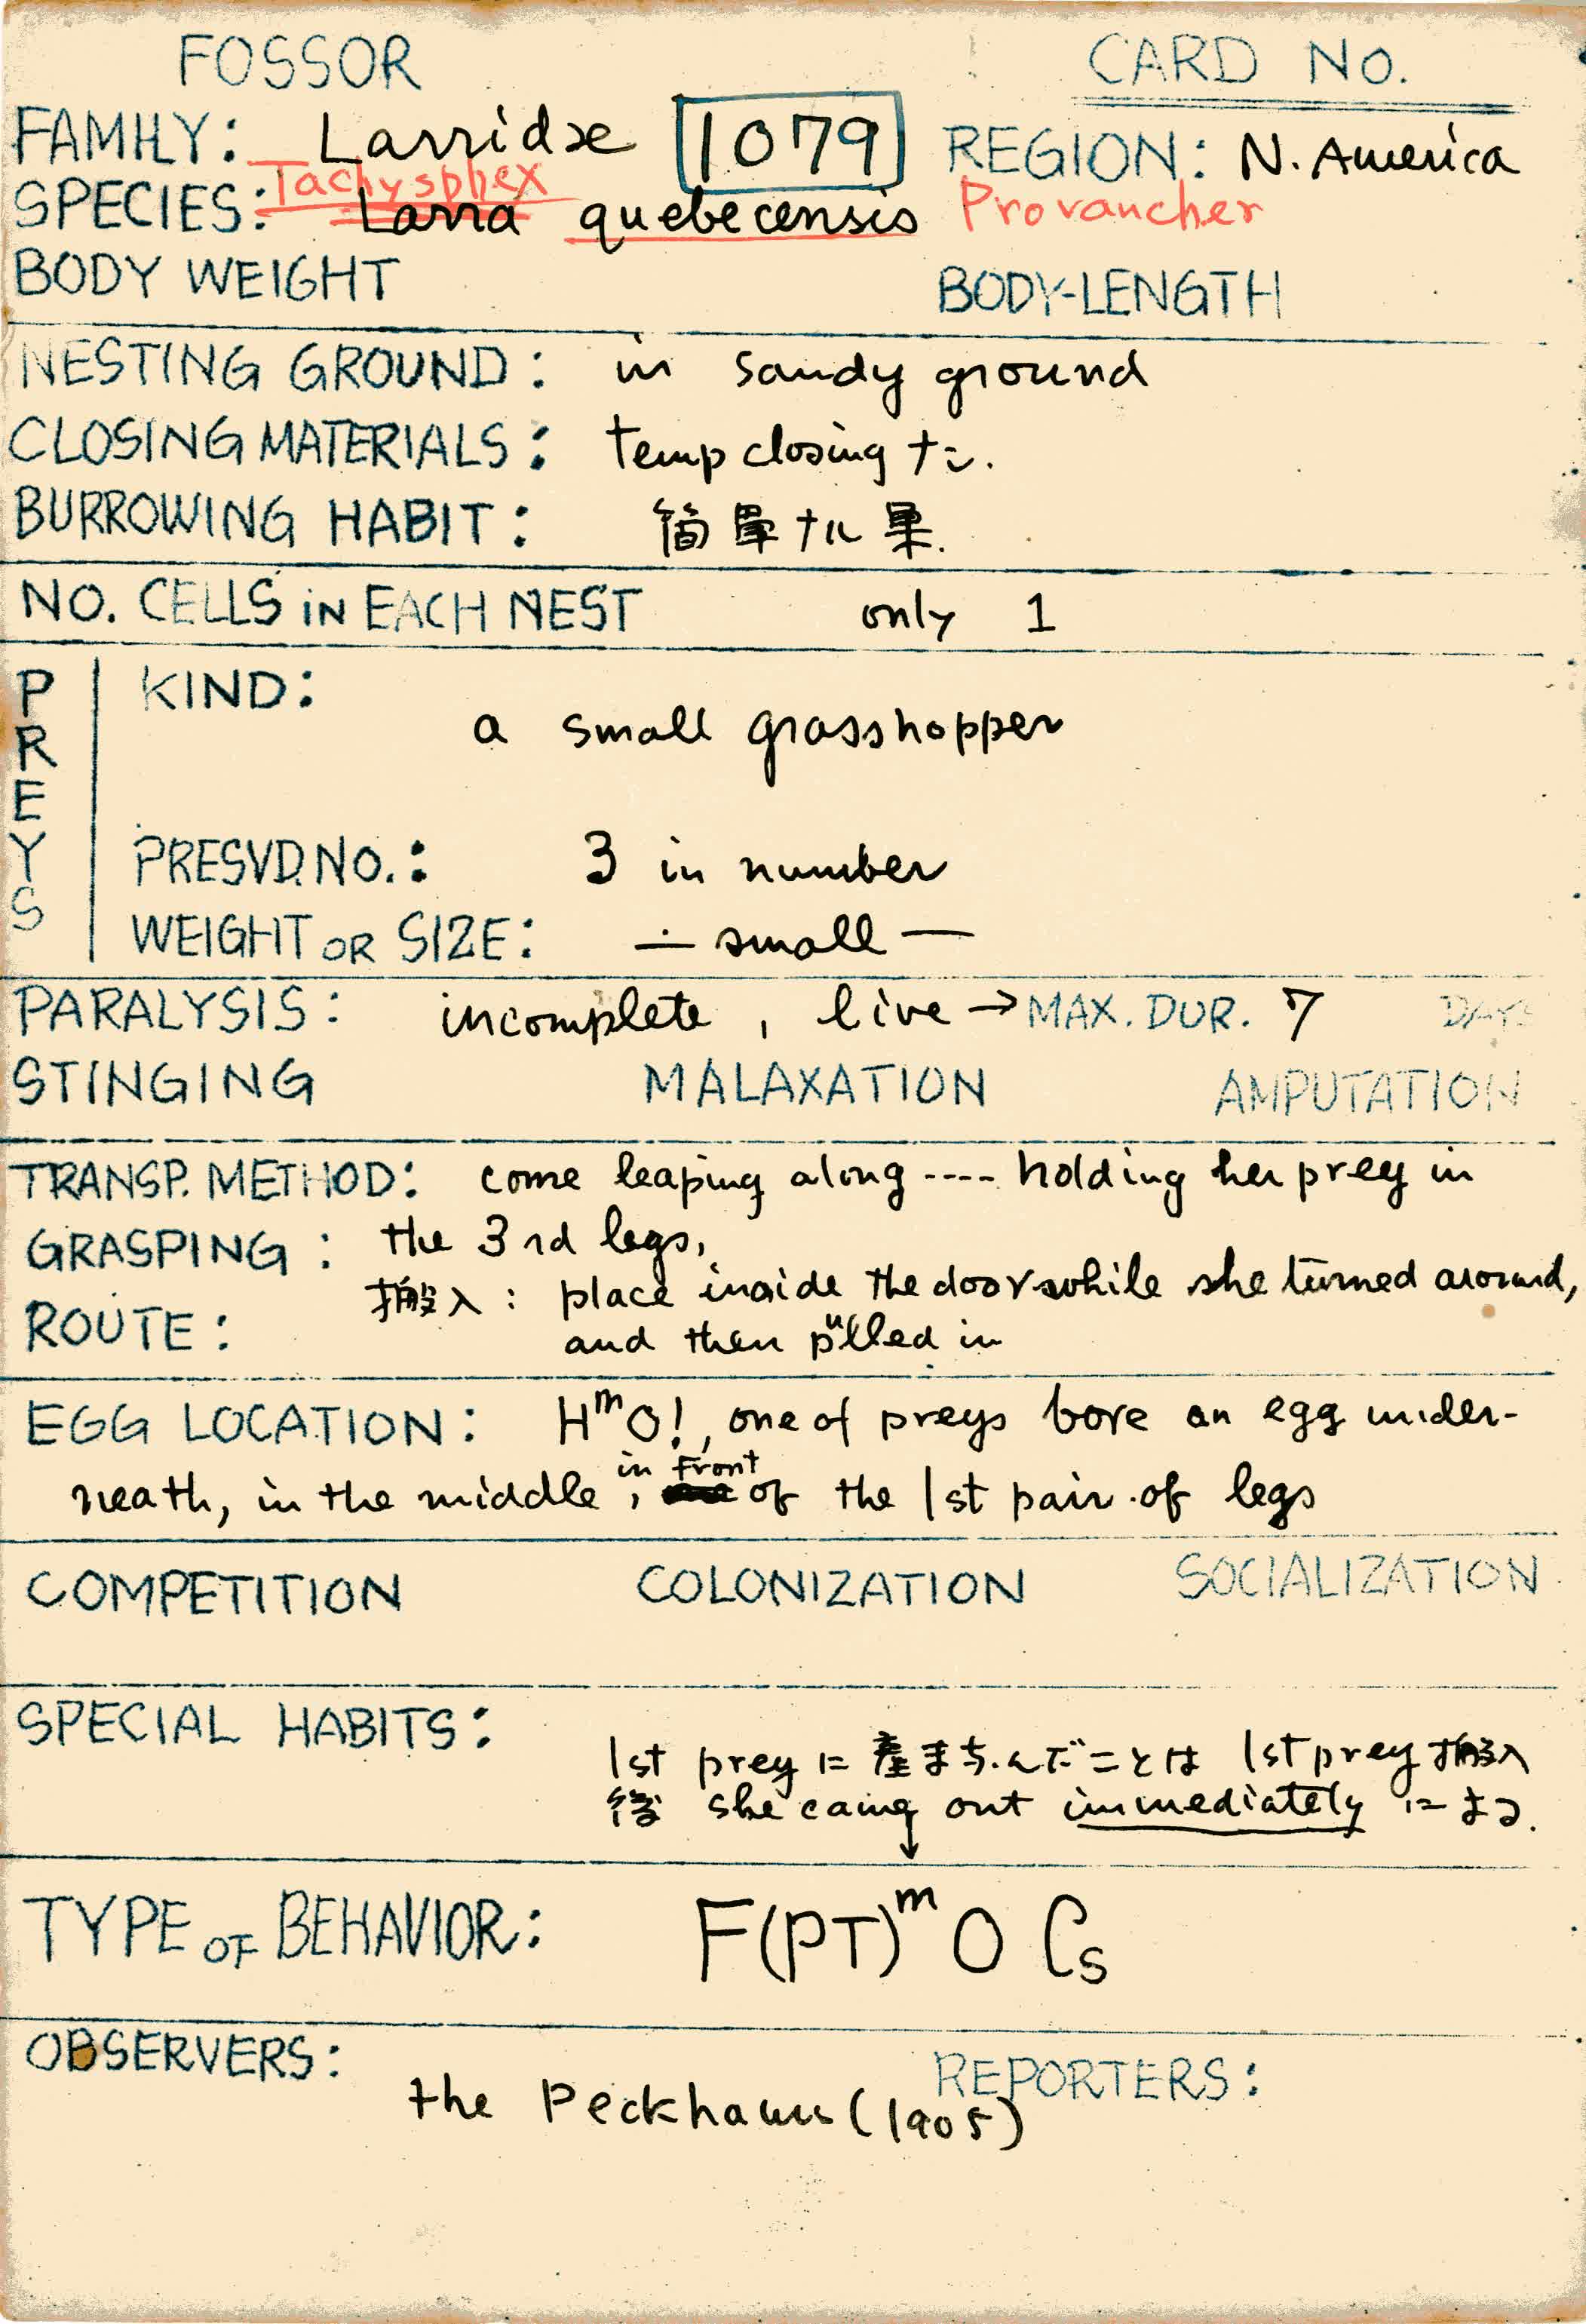 FOSSOR CARD NO.
FAMILY: Larridae 1079 REGION: N. America
Tachysphex
SPECIES: Larra quebecensis Provancher
BODY WEIGHT BODY-LENGTH
NESTING GROUND: in sandy ground
CLOSING MATERIALS: temp closing ナシ.
BURROWING HABIT: 簡単ナル巣.
NO. CELLS IN EACH NEST only 1
PREYS
KIND:
a small grasshopper
PRESVD. NO.: 3 in number
WEIGHT OR SIZE: — small —
PARALYSIS: incomplete, live → MAX. DUR. 7 DAYS
STINGING MALAXATION AMPUTATION
TRANSP. METHOD: come leaping along ---- holding her prey in
GRASPING: the 3rd legs,
搬入: place inside the door while she turned around,
ROUTE: and then pulled in
EGG LOCATION: HᵐO!, one of preys bore an egg under-
neath, in the middle, in front of the 1st pair of legs
COMPETITION COLONIZATION SOCIALIZATION
SPECIAL HABITS:
1st prey に産まちんだことは 1st prey 搬入
後 she came out immediately による.
TYPE OF BEHAVIOR: F(PT)ᵐ O Cs
OBSERVERS: REPORTERS:
the Peckhams (1905)